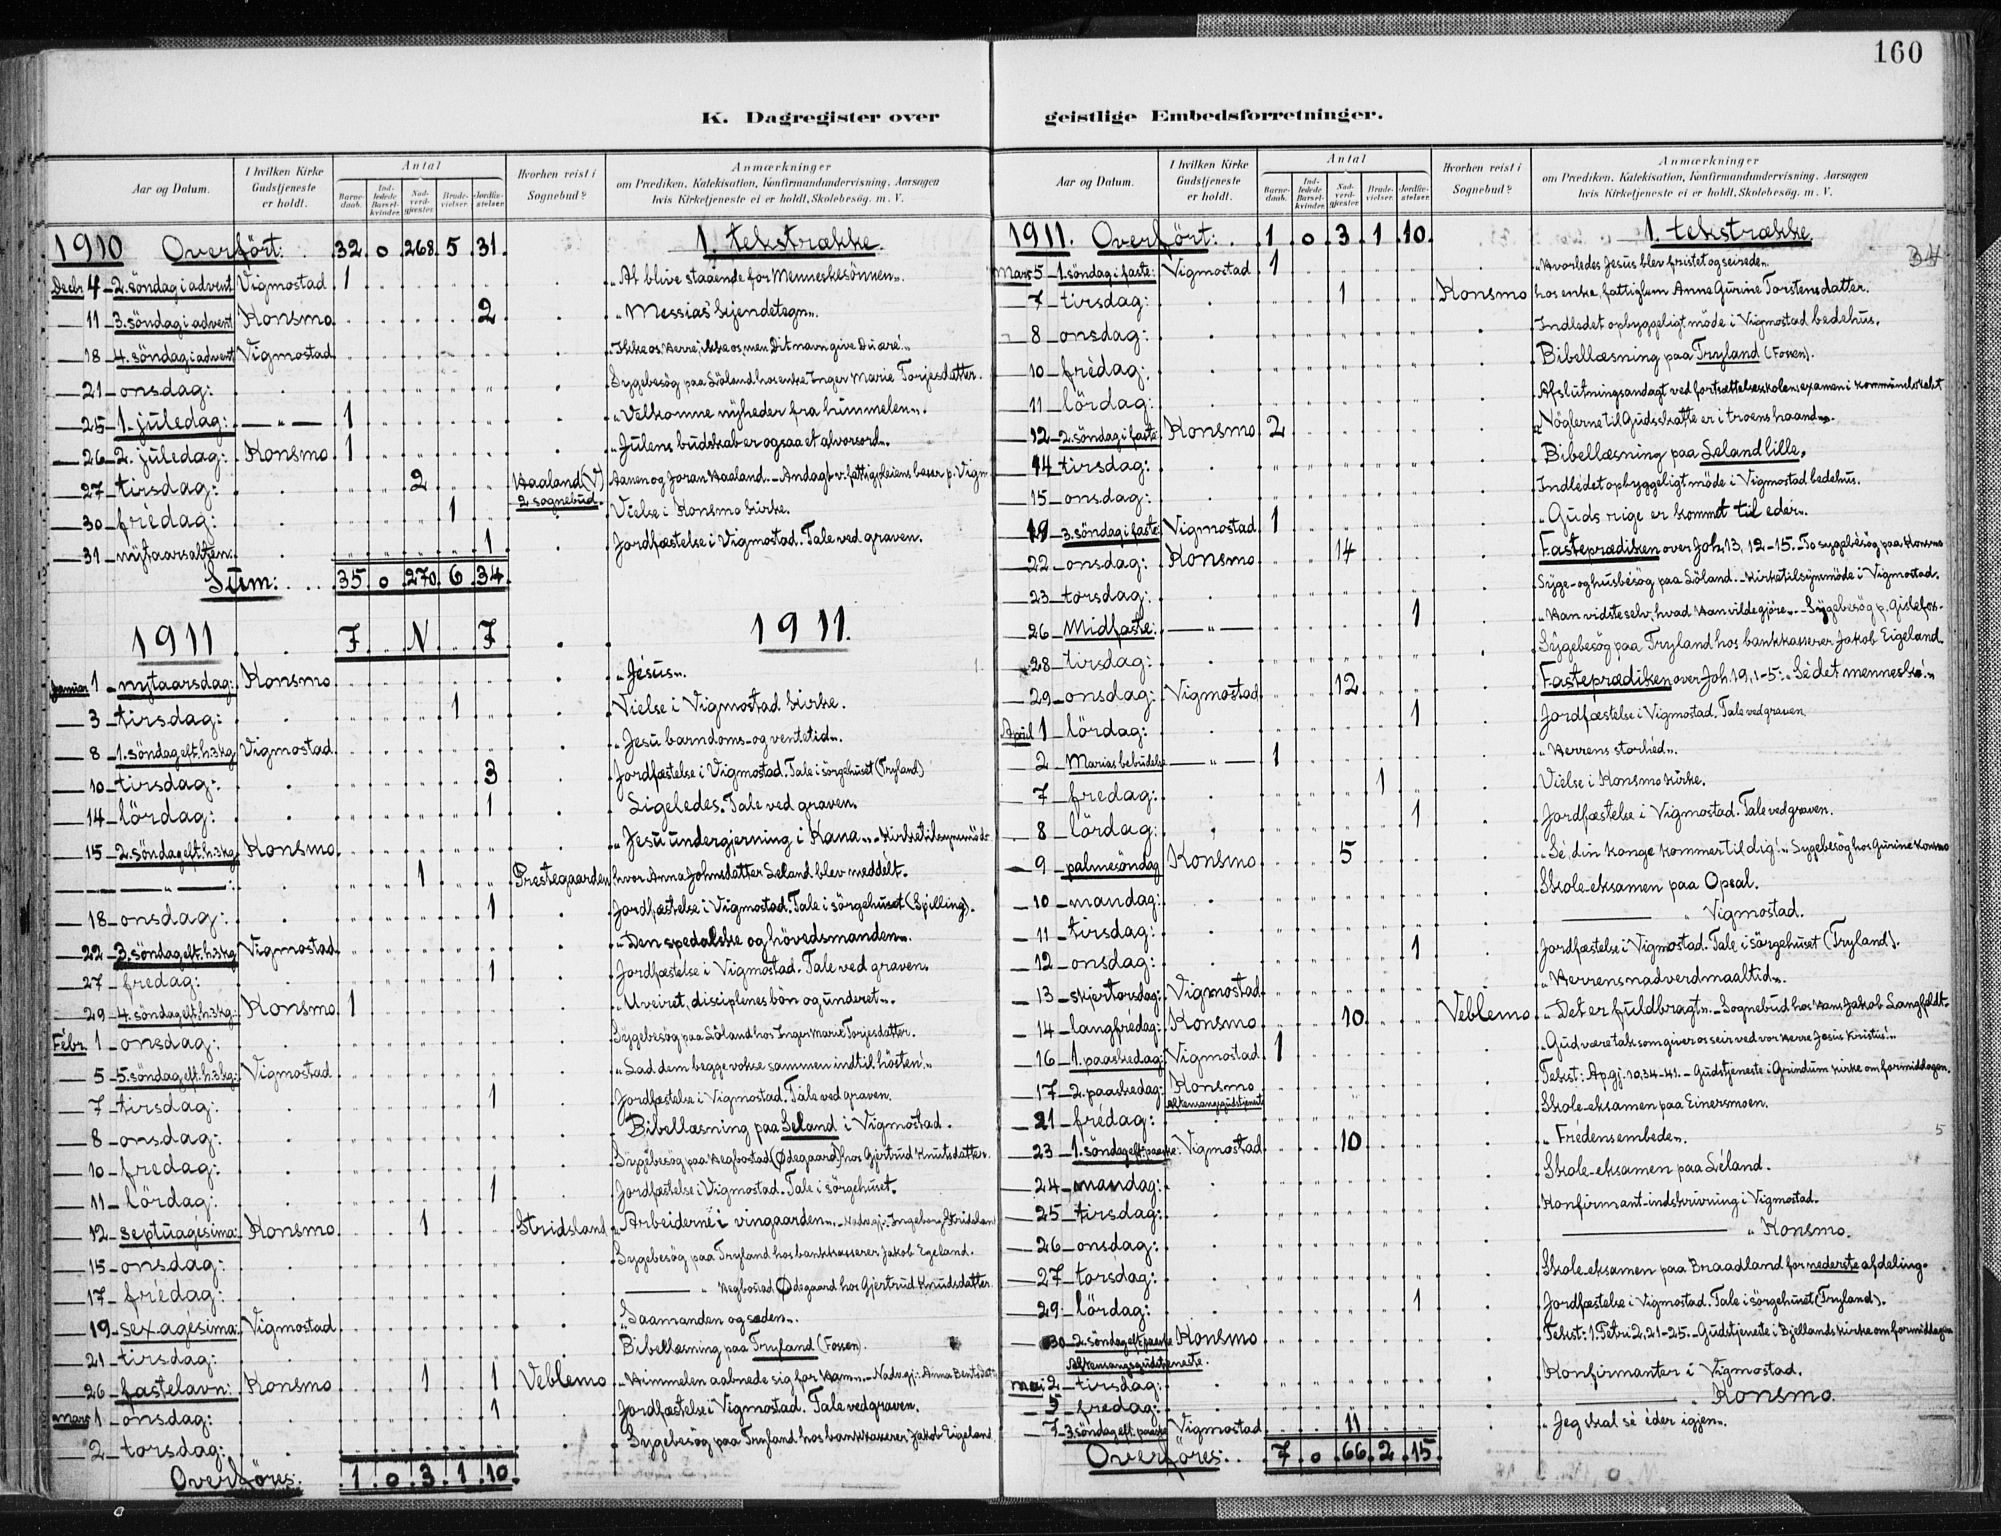 160
K. Dagregister over geistlige Embedsforretninger.
Aar og Datum. | I hvilken Kirke Gudstjeneste er holdt. | Antal | Barnedaab. | Indledede Barselkvinder. | Nadverdgjæster. | Brudevielser. | Jordfæstelser. | Hvorhen reist i Sognebud? | Anmærkninger om Prædiken, Katekisation, Konfirmandundervisning, Aarsagen hvis Kirketjeneste ei er holdt, Skolebesög. m. V.
1910 Overfört: 32 0 268 5 31 1. tekstrække.
Decbr 4 - 2. söndag i advent Vigmostad 1 "At blive staaende for Menneskesönnen".
11 - 3. söndag i advent Konsmo 2 "Messias' kjendetegn".
18 - 4. söndag i advent Vigmostad "Ikke os, Herre, ikke os, men Dit navn give Du ære!"
21 - onsdag: Sygebesög paa Löland hos enke Inger Marie Torjesdatter.
25 - 1. juledag: — " — 1 "Velkomne nyheder fra himmelen".
26 - 2. juledag: Konsmo 1 "Julens budskab er ogsaa et alvorsord".
27 - tirsdag: 2 Haaland (V) 2 sognebud. Aanen og Joran Haaland. - Andagt v. fattigpleiens kasse p. Vigm.
30 - frédag: 1 Vielse i Konsmo kirke.
31 - nytaarsaften: 1 Jordfæstelse i Vigmostad. Tale ved graven.
Sum: 35 0 270 6 34
1911 F N F 1911.
Januar 1 - nytaarsdag: Konsmo "Jésus".
3 - tirsdag: 1 Vielse i Vigmostad kirke.
8 - 1. söndag eft. h.3kg. Vigmostad "Jesu barndoms- og ventetid".
10 - tirsdag: 3 Jordfæstelse i Vigmostad. Tale i sörgehuset (Tryland)
14 - lördag: 1 Ligeledes. Tale ved graven.
15 - 2. söndag eft. h.3kg. Konsmo "Jesu undergjerning i Kana". - Kirketilsynsmöde
— " — : 1 Prestegaarden hvor Anna Johnsdatter Leland blev meddélt.
18 - onsdag: 1 Jordfæstelse i Vigmostad. Tale i sörgehuset (Spilling).
22 - 3. söndag eft. h.3kg Vigmostad "Den spedalske og hövedsmanden".
27 - fredag: 1 Jordfæstelse i Vigmostad. Tale ved graven.
29 - 4. söndag eft. h.3kg. Konsmo 1 "Uveiret, disciplenes bön og underet".
Febr. 1 - onsdag: Sygebesög paa Löland hos Inger Marie Torjesdatter.
5 - 5. söndag eft. h.3kg: Vigmostad "Lad dem begge vokse sammen indtil hösten!"
7 - tirsdag: 1 Jordfæstelse i Vigmostad. Tale ved graven.
8 - onsdag: Bibellæsning paa Leland i Vigmostad.
10 - fredag: Sygebesög paa Hegbostad (Ødegaard) hos Gjertrud Knutsdatter.
11 - lördag: 1 Jordfæstelse i Vigmostad. Tale i sörgehuset.
12 - septuagesima: Konsmo 1 Stridsland "Arbeiderne i vingaarden". - Nadvgj.: Ingeborg Stridsland
15 - onsdag: Sygebesög paa Tryland hos bankkasserer Jakob Egeland.
17 - frédag: — " Hegbostad Ødegaard hos Gjertrud Knudsdatter.
19 - sexagésima: Vigmostad "Saamanden og sæden".
21 - tirsdag: Bibellæsning paa Tryland (Fossen).
26 - fastelavn: Konsmo 1 1 Veblemo "Himmelen aabnede sig for Ham". - Nadvgj.: Anna Bentsdatter
Mars 1 - onsdag: 1 Jordfæstelse i Vigmostad. Tale ved graven.
2 - torsdag: Sygebesög paa Tryland hos bankkasserer Jakob Eigeland
Overföres: 1 0 3 1 10
Aar og Datum. | I hvilken Kirke Gudstjeneste er holdt. | Antal | Barnedaab. | Indledede Barselkvinder. | Nadverdgjæster. | Brudevielser. | Jordfæstelser. | Hvorhen reist i Sognebud? | Anmærkninger om Prædiken, Katekisation, Konfirmandundervisning, Aarsagen hvis Kirketjeneste ei er holdt, Skolebesög. m. V.
1911. Overfört: 1 0 3 1 10 1. tekstrække
Mars 5 - 1. söndag i faste: Vigmostad 1 "Hvorledes Jesus blev fristet og seirede".
7 - tirsdag: 1 Konsmo hos enke, fattiglem Anne Gurine Torstensdatter.
8 - onsdag: Indledet opbyggeligt möde i Vigmostad bedehus.
10 - frédag: Bibellæsning paa Tryland (Fossen).
11 - lördag: Afslutningsandagt ved fortsættelsesskolens examen i kommunelokalet
12 - 2. söndag i faste: Konsmo 2 "Nöglerne til Guds skatte er i troens haand".
14 - tirsdag: Bibellæsning paa Leland lille.
15 - onsdag: Indledet opbyggeligt möde i Vigmostad bedehus.
19 - 3. söndag i faste: Vigmostad 1 "Guds rige er kommet til eder".
22 - onsdag: Konsmo 14 Fasteprædiken over Joh. 13, 12-15. - To sygebesög paa Konsmo
23 - torsdag: Syge- og husbesög paa Löland. - Kirketilsynsmöde i Vigmostad.
26 - Midfaste: — " — 1 "Han vidste selv, hvad Han vilde gjöre". - Sygebesög p. Gislefos.
28 - tirsdag: Sygebesög paa Tryland hos bankkasserer Jakob Eigeland.
29 - onsdag: Vigmostad 12 Fasteprædiken over Joh. 19, 1-5: "Sé det menneske!"
April 1 - lördag: 1 Jordfæstelse i Vigmostad. Tale ved graven.
2 - Marias bebudelse — " — 1 "Herrens storhéd".
7 - fredag: 1 Vielse i Konsmo kirke.
8 - lördag: 1 Jordfæstelse i Vigmostad. Tale ved graven.
9 - palmesöndag Konsmo 5 "Sé, din konge kommer til dig!" Sygebesög hos Gurine Konsmo
10 - mandag: Skole-eksamen paa Opsal.
11 - tirsdag: — " Vigmostad.
12 - onsdag: 1 Jordfæstelse i Vigmostad. Tale i sörgehuset (Tryland).
13 - skjertorsdag: Vigmostad "Herrens nadverdmaaltid".
14 - langfrédag: Konsmo 10 Veblemo "Det er fuldbragt". - Sognebud hos Hans Jakob Langfeldt
16 - 1. paaskedag: Vigmostad 1 "Gud være tak som giver os seir ved vor Herre Jesus Kristus!"
17 - 2. paaskedag: Konsmo Aftensangsgudstjeneste Tekst: Ap.gj. 10,34-41. - Gudstjeneste i Grindum kirke om formiddagen.
21 - frédag: Skole-eksamen paa Einersmoen.
23 - 1. söndag eft. paaske: Vigmostad 10 "Frédens embede".
24 - mandag: Skole-eksamen paa Léland.
25 - tirsdag: Konfirmant-indskrivning i Vigmostad.
26 - onsdag: — " Konsmo.
27 - torsdag: Skole-eksamen paa Braadland for nederste afdeling.
29 - lördag: 1 Jordfæstelse i Vigmostad. Tale i sörgehuset (Tryland).
30 - 2. söndag eft. paaske Konsmo Aftensangsgudstjeneste. Tekst: 1 Petri 2, 21-25. - Gudstjeneste i Bjellands kirke om formiddagen
mai 2 - tirsdag: Konfirmanter i Vigmostad.
5 - fredag: — " Konsmo.
7 - 3. söndag eft. paaske Vigmostad 11 "Jeg skal sé éder igjen".
Overföres: 7 0 66 2 15